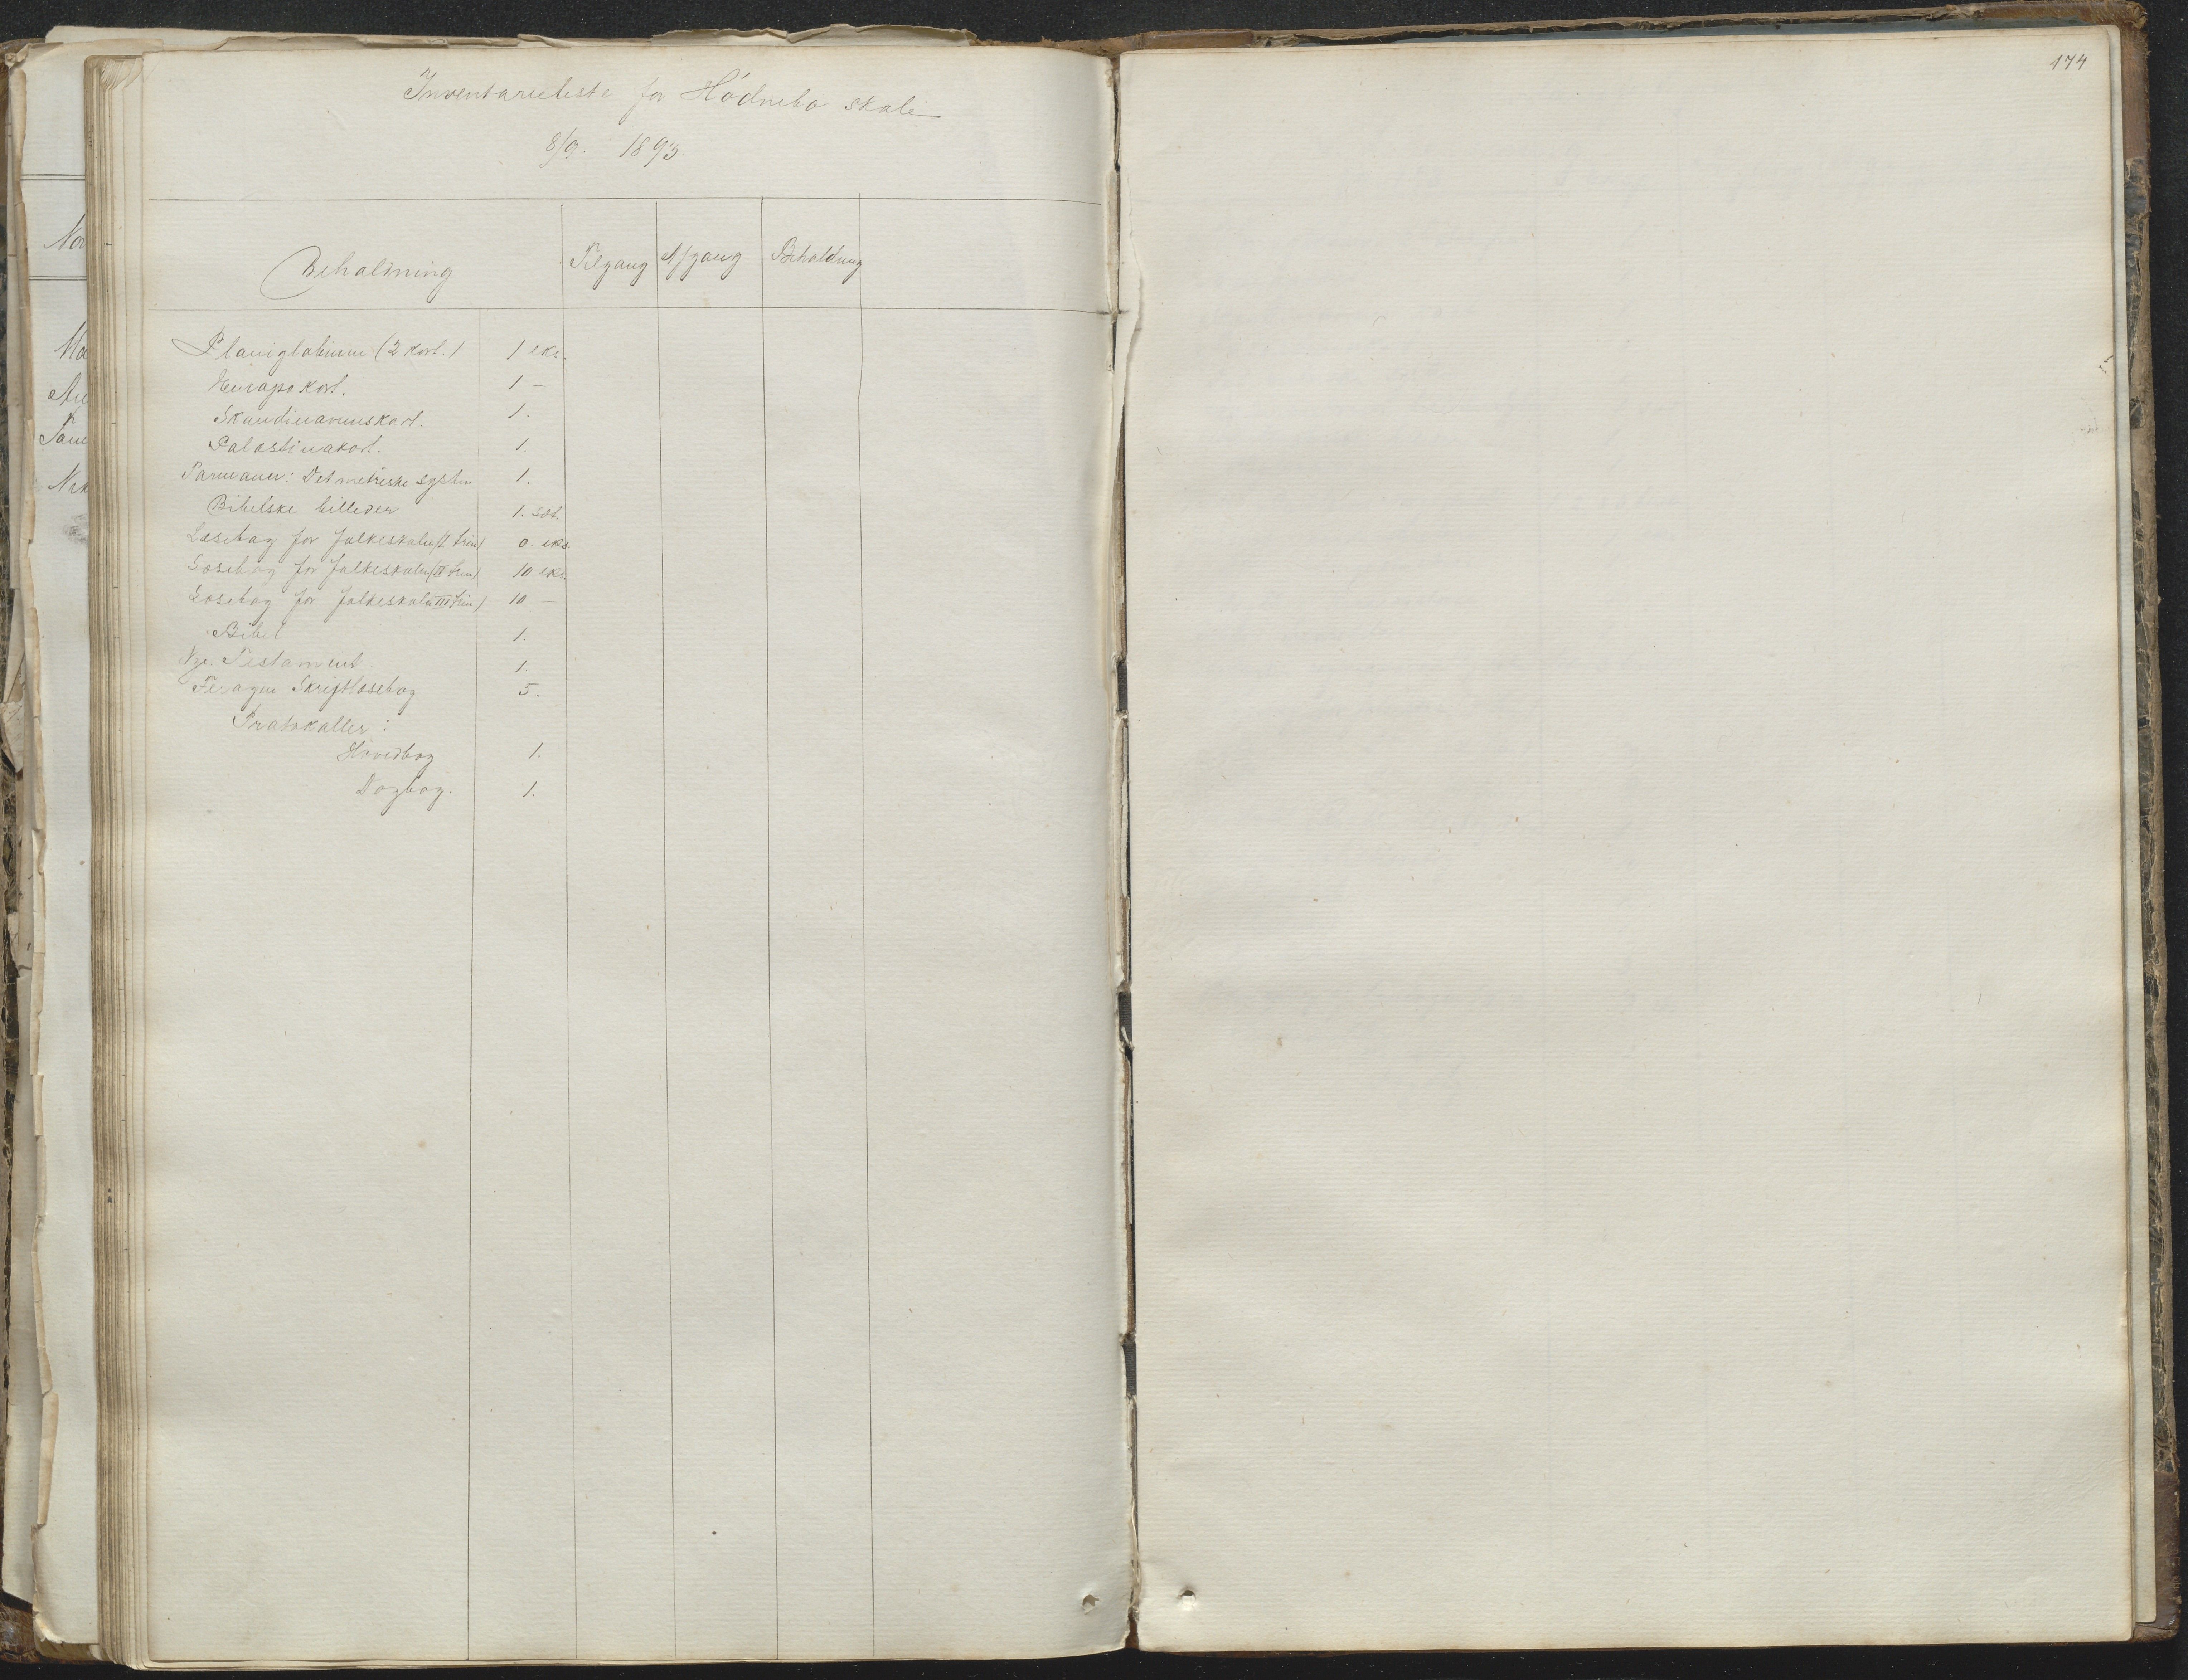 Inventarieliste for Hødnebø skole
8/9. 1893.
Beholdning Tilgang Afgang Beholdning
Planiglobium (2 kort.) 1 eks.
Europakort. 1 —
Skandinaviuskart. 1.
Palæstinakort. 1.
Parmann: Det metriske system 1.
Bibelske billeder 1. sæt.
Læsebog for folkeskolen (I trin) 0. eks.
Læsebog for folkeskolen (II trin) 10 eks.
Læsebog for folkeskolen (III trin) 10 —
Bibel 1.
Nye Testament 1.
Feragen Skriftlæsebog 5.
Protokoller:
Hovedbog 1.
Dagbog. 1.
174